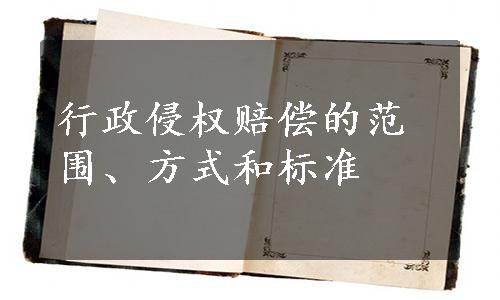 行政侵权赔偿的范
围、方式和标准